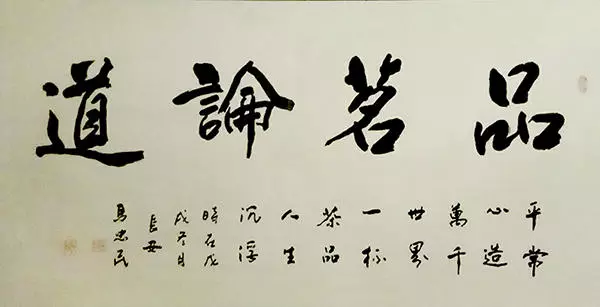 品茗論道
平常
心造
萬千
世界
一杯
茶品
人生
沉浮
時在戊
戌冬月
長安
馬忠民